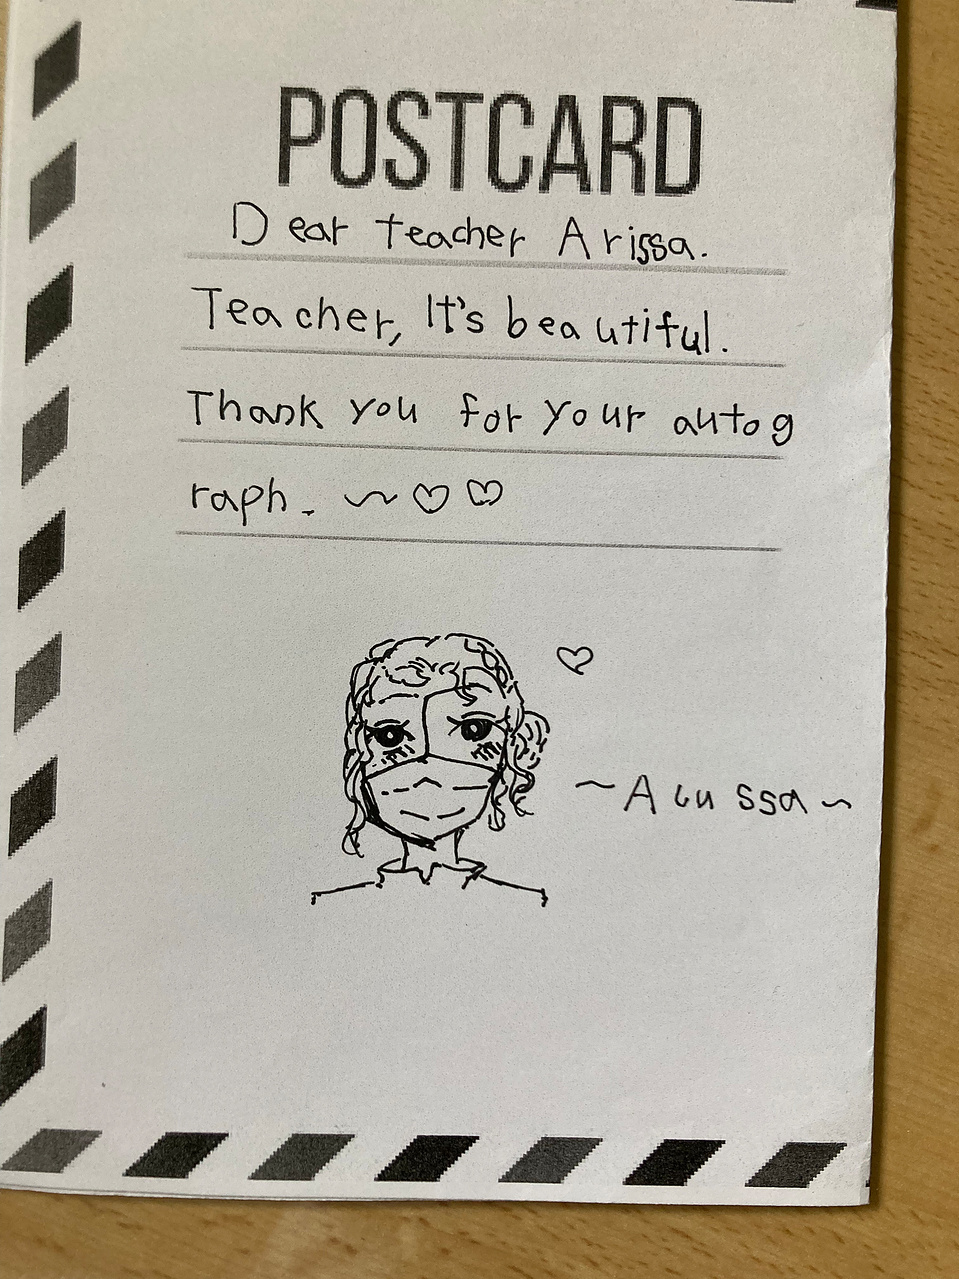 POSTCARD
Dear teacher Arissa.
Teacher, It's beautiful.
Thank you for your autog
raph. ~♡♡
♡